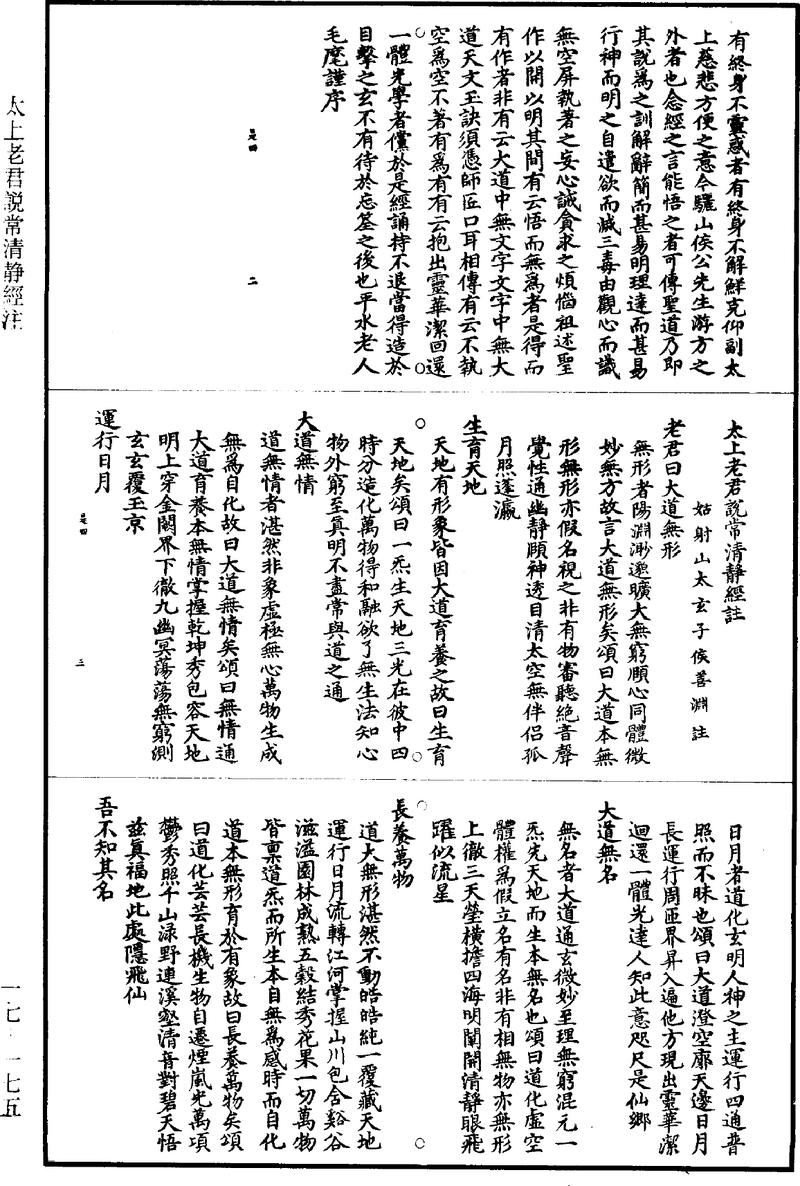 太上老君説常清静經注
一七·一七五
有終身不靈惑者有終身不解鮮克仰副太
上慈悲方便之意今驪山侯公先生游方之
外者也念經之言能悟之者可傳聖道乃即
其說為之訓解辭簡而甚易明理達而甚易
行神而明之自遣欲而滅三毒由觀心而識
無空屏執著之妄心誡貪求之煩惱祖述聖
作以開以明其間有云悟而無為者是得而
有作者非有云大道中無文字文字中無大
道天文玉訣須憑師匠口耳相傳有云不執
空為空不著有為有有云抱出靈華潔回還
一體光學者儻於是經誦持不退當得造於
目擊之玄不有待於忘筌之後也平水老人
毛麾謹序
是四
二
太上老君說常清静經註
姑射山太玄子侯善淵註
老君曰大道無形
無形者陽淵渺邈曠大無窮願心同體微
妙無方故言大道無形矣頌曰大道本無
形無形亦假名視之非有物審聽絕音聲
覺性通幽靜頤神透目清太空無伴侶孤
月照蓬瀛
生育天地
天地有形象皆因大道育養之故曰生育
天地矣頌曰一炁生天地三光在彼中四
時分造化萬物得和融欲了無生法知心
物外窮至真明不盡常與道之通
大道無情
道無情者湛然非象虛極無心萬物生成
無為自化故曰大道無情矣頌曰無情通
大道育養本無情掌握乾坤秀包容天地
明上穿金闕界下徹九幽冥蕩蕩無窮測
玄玄覆玉京
運行日月
是四
三
日月者道化玄明人神之主運行四通普
照而不昧也頌曰大道澄空廓天邊日月
長運行周匝界昇入遍他方現出靈華潔
迴還一體光達人知此意咫尺是仙鄉
大道無名
無名者大道通玄微妙至理無窮混元一
炁先天地而生本無名也頌曰道化虛空
體權為假立名有名非有相無物亦無形
上徹三天瑩橫擔四海明闡開清靜眼飛
躍似流星
長養萬物
道大無形湛然不動皓皓純一覆藏天地
運行日月流轉江河掌握山川包含谿谷
滋溢園林成熟五穀結秀花果一切萬物
皆禀道炁而所生本自無為感時而自化
道本無形育於有象故曰長養萬物矣頌
曰道化芸芸長機生物自遷煙嵐光萬項
鬱秀照千山渌野連溪壑清音對碧天悟
茲真福地此處隱飛仙
吾不知其名